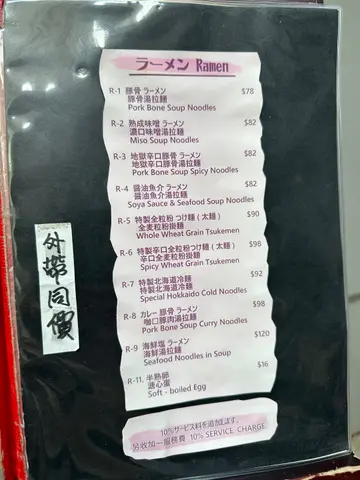 ラーメン Ramen
R-1 豚骨 ラーメン $78
豚骨湯拉麵
Pork Bone Soup Noodles
R-2 熟成味噌 ラーメン $82
濃口味噌湯拉麵
Miso Soup Noodles
R-3 地獄辛口豚骨 ラーメン $82
地獄辛口豚骨湯拉麵
Pork Bone Soup Spicy Noodles
R-4 醤油魚介 ラーメン $82
醤油魚介湯拉麵
Soya Sauce & Seafood Soup Noodles
R-5 特製全粒粉 つけ麵 ( 太麵 ) $90
全麦粒粉掛麵
Whole Wheat Grain Tsukemen
R-6 特製辛口全粒粉 つけ麵 ( 太麵 ) $98
辛口全麦粒粉掛麵
Spicy Wheat Grain Tsukemen
R-7 特製北海道冷麵 $92
特製北海道冷麵
Special Hokkaido Cold Noodles
R-8 カレー 豚骨 ラーメン $98
咖口豚肉湯拉麵
Pork Bone Soup Curry Noodles
R-9 海鮮塩 ラーメン $120
海鮮湯拉麵
Seafood Noodles in Soup
R-11. 半熟卵 $16
溏心蛋
Soft - boiled Egg
10%サービス料を追加にします。
另收加一服務費 10% SERVICE CHARGE
外帶同價